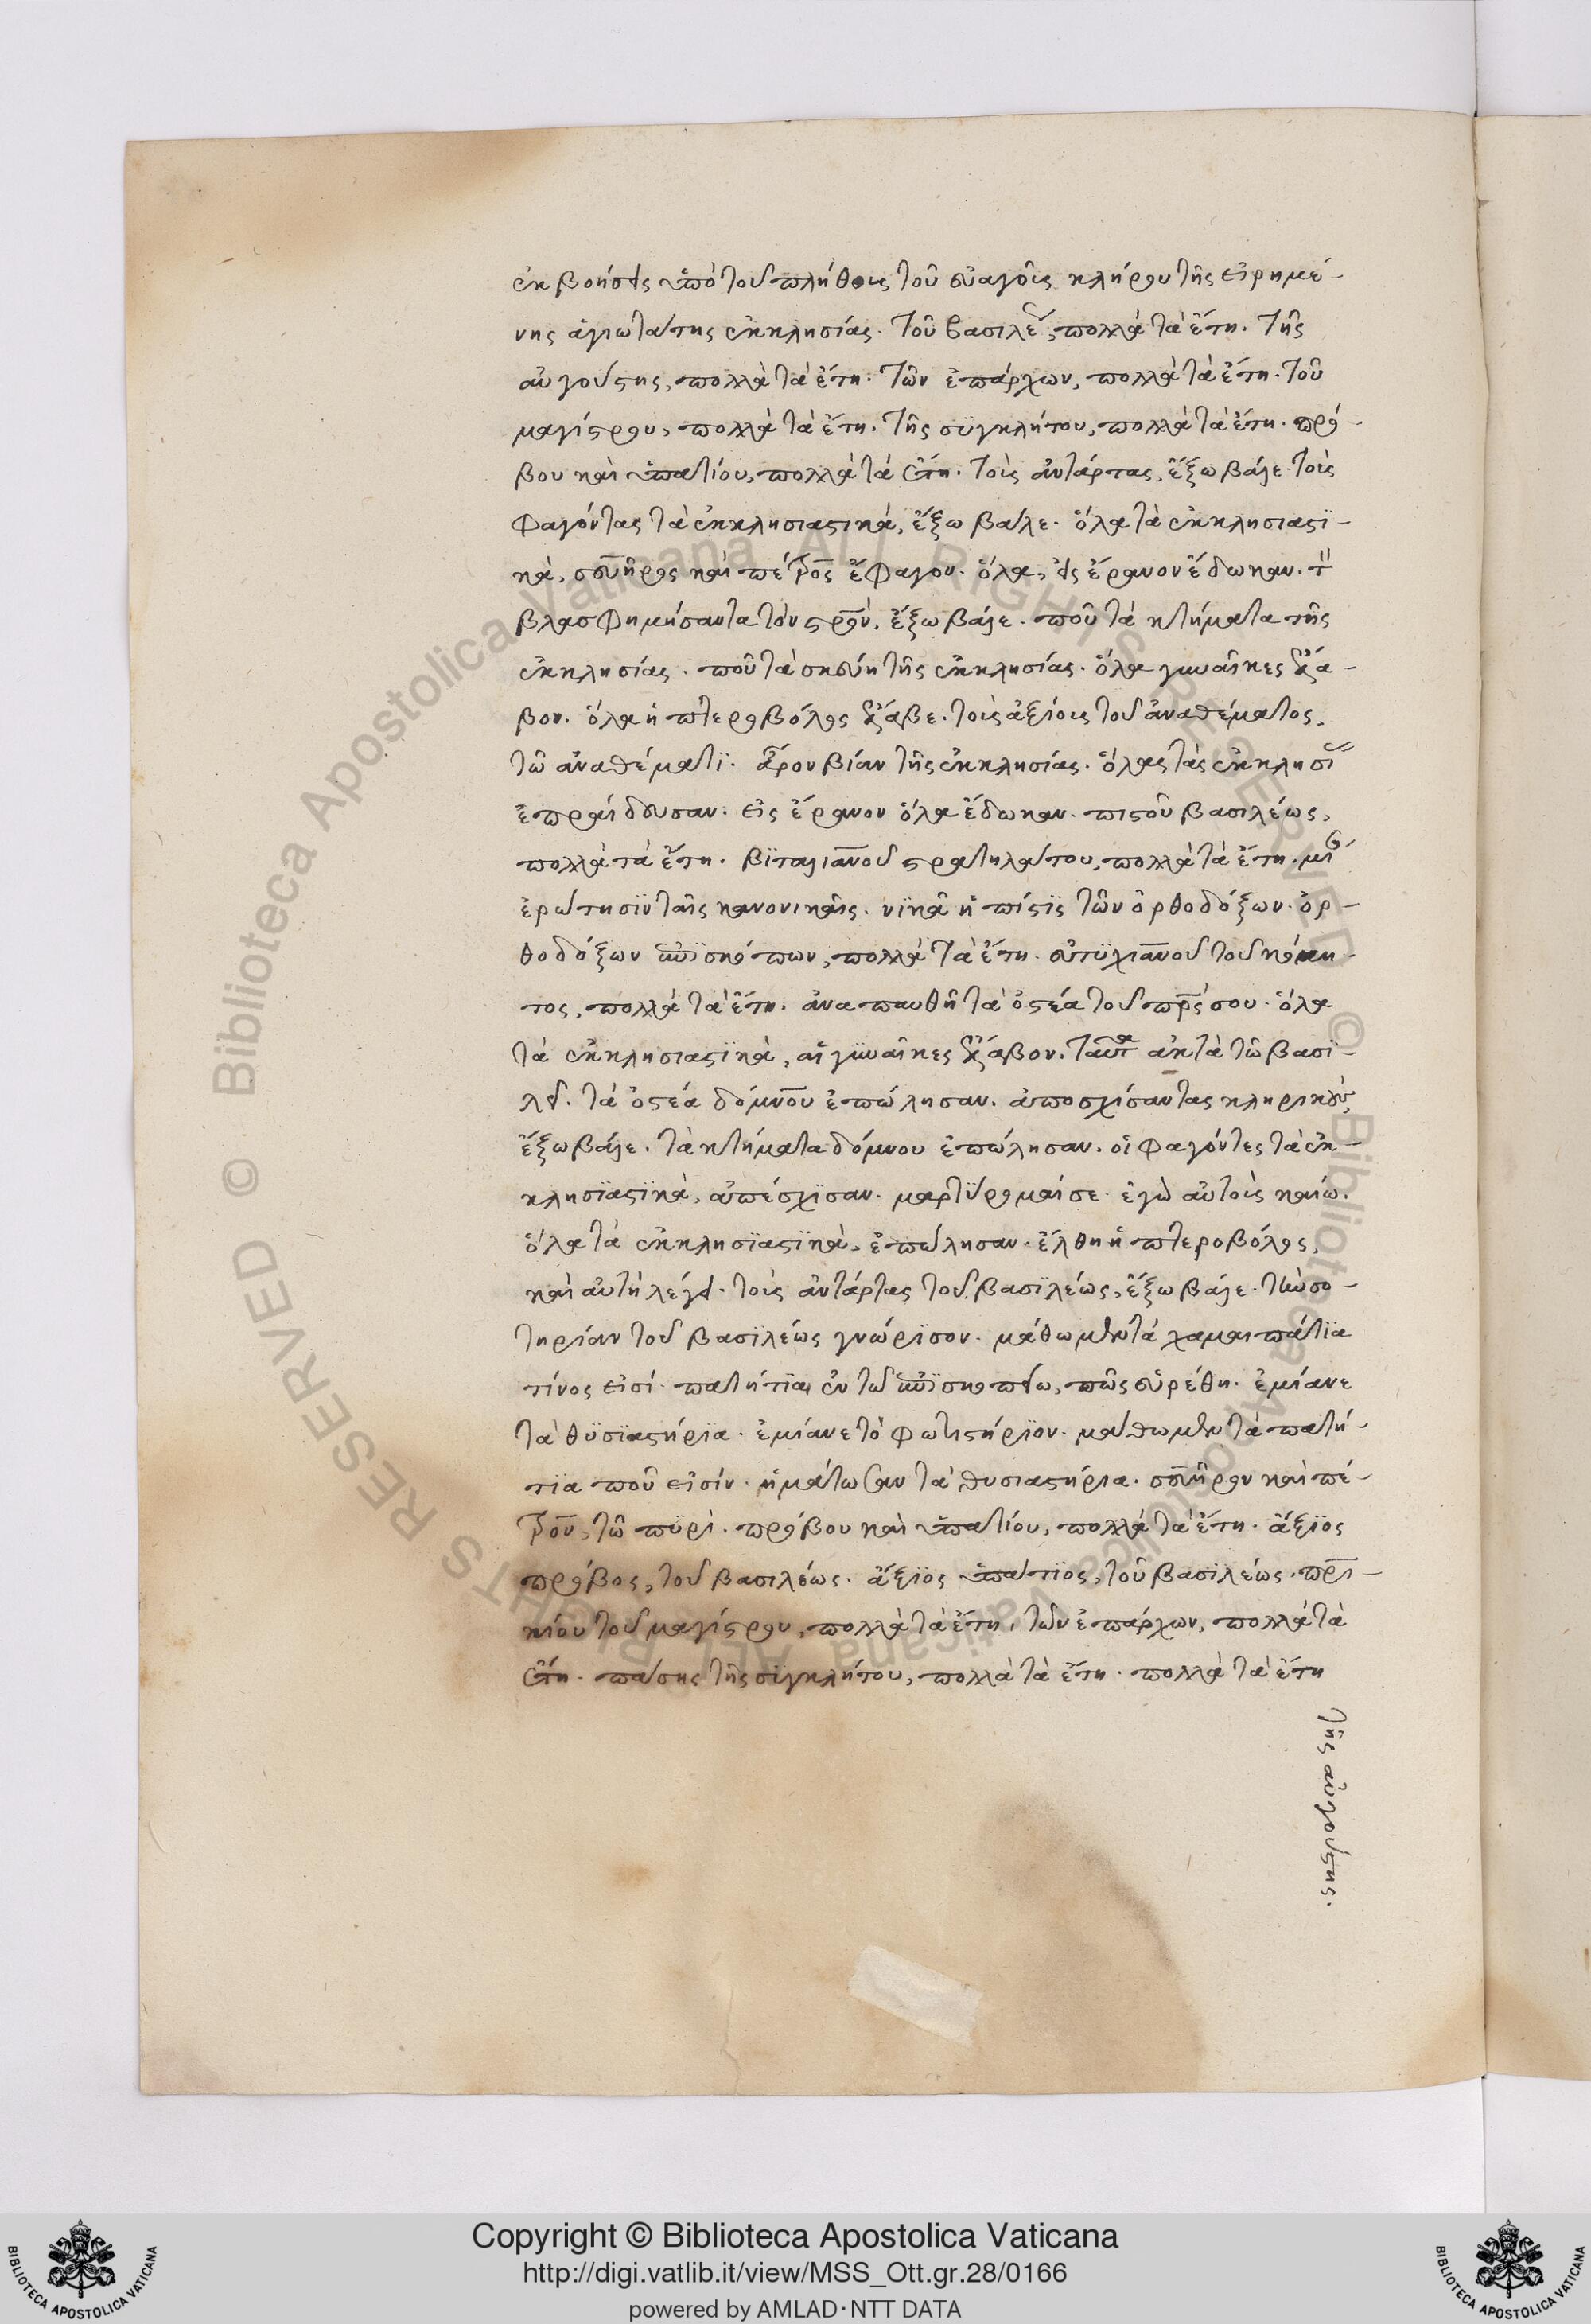 ἐκβοήσεις ὑπὸ τοῦ πλήθους τοῦ εὐαγοῦς κλήρου τῆς εἰρημέ-
νης ἁγιωτάτης ἐκκλησίας. τοῦ βασιλέως, πολλὰ τὰ ἔτη. τῆς
αὐγούστης, πολλὰ τὰ ἔτη. τῶν ἐπάρχων, πολλὰ τὰ ἔτη. τοῦ
μαγίστρου, πολλὰ τὰ ἔτη. τῆς συγκλήτου, πολλὰ τὰ ἔτη. πρό-
βου καὶ ὑπατίου, πολλὰ τὰ ἔτη. τοὺς ἀντάρτας, ἔξω βάλε. τοὺς
φαγόντας τὰ ἐκκλησιαστικά, ἔξω βάλε. ὅλα τὰ ἐκκλησιαστϊ-
κὰ, σευῆρος καὶ πέτρος ἔφαγον. ὅλα, εἰς ἔρανον ἔδωκαν. τὸν
βλασφημήσαντα τὸν στρον, ἔξω βάλε. ποῦ τὰ κτήματα τῆς
ἐκκλησίας. ποῦ τὰ σκεύη τῆς ἐκκλησίας. ὅλα γυναῖκες ἔλα-
βον. ὅλα ἡ πτεροβόλος ἔλαβε. τοὺς ἀξίους τοῦ ἀναθέματος,
τῶ ἀναθέματϊ. ἆρον βίαν τῆς ἐκκλησίας. ὅλας τὰς ἐκκλησί
ἐπραίδευσαν. εἰς ἔρανον ὅλα ἔδωκαν. πιστοῦ βασιλέως,
πολλὰ τὰ ἔτη. βϊταλιανοῦ στρατηλάτου, πολλὰ τὰ ἔτη.
ἐρώτησιν ταῖς κανονικαῖς. νϊκᾶ ἡ πίστϊς τῶν ὀρθοδόξων. ὀρ-
θοδόξων ἐπϊσκόπων, πολλὰ τὰ ἔτη. εὐτυχιανοῦ τοῦ κόμη-
τος, πολλὰ τὰ ἔτη. ἀναπαυθῆ τὰ ὀστέα τοῦ πρς σου. ὅλα
τὰ ἐκκλησιαστϊκὰ, αἱ γυναῖκες ἔλαβον. ταῦτα ἀκτὰ τῶ βασϊ-
λεῖ. τὰ ὀστέα δόμνου ἐπώλησαν. ἀποσχίσαντας κληρικοὺς,
ἔξω βάλε. τὰ κτήματα δόμνου ἐπώλησαν. οἱ φαγόντες τὰ ἐκ-
κλησϊαστϊκὰ, ἀπέσχϊσαν. μαρτύρομαί σε. ἐγὼ αὐτοὺς καίω.
ὅλα τὰ ἐκκλησϊαστϊκὰ, ἐπώλησαν. ἔλθη ἡ πτεροβόλος,
καὶ αὐτὴ λέγει. τοὺς ἀντάρτας τοῦ βασϊλέως, ἔξω βάλε. τὴν σο-
τηρίαν τοῦ βασϊλέως γνώρϊσον. μάθωμεν τὰ χαμαιπάτϊα
τίνος εἰσί. πατήτϊα ἐν τῶ ἐπϊσκοπείω, πῶς εὑρέθη. ἐμίανε
τὰ θϋσϊαστήρϊα. ἐμίανε τὸ φωτιστήρϊον. μάθωμεν τὰ πατή-
τϊα ποῦ εἰσίν. ἡμάτωσαν τὰ θυσιαστήρια. σευῆρον καὶ πέ-
τρον, τῶ πϋρὶ. πρόβου καὶ ὑπατίου, πολλὰ τὰ ἔτη. ἄξϊος
πρόβος, τοῦ βασιλέως. ἄξϊος ὑπάτϊος, τοῦ βασϊλέως. πρι-
κίου τοῦ μαγίστρου, πολλὰ τὰ ἔτη, τῶν ἐπάρχων, πολλὰ τὰ
ἔτη. πάσης τῆς σϋγκλήτου, πολλὰ τὰ ἔτη. πολλὰ τὰ ἔτη
τῆς αὐγούστης.
Copyright © Biblioteca Apostolica Vaticana
http://digi.vatlib.it/view/MSS_Ott.gr.28/0166
powered by AMLAD·NTT DATA
BIBLIOTECA APOSTOLICA VATICANA
BIBLIOTECA APOSTOLICA VATICANA
© Biblioteca Apostolica Vaticana ALL RIGHTS RESERVED © Biblioteca Apostolica Vaticana ALL RIGHTS RESERVED